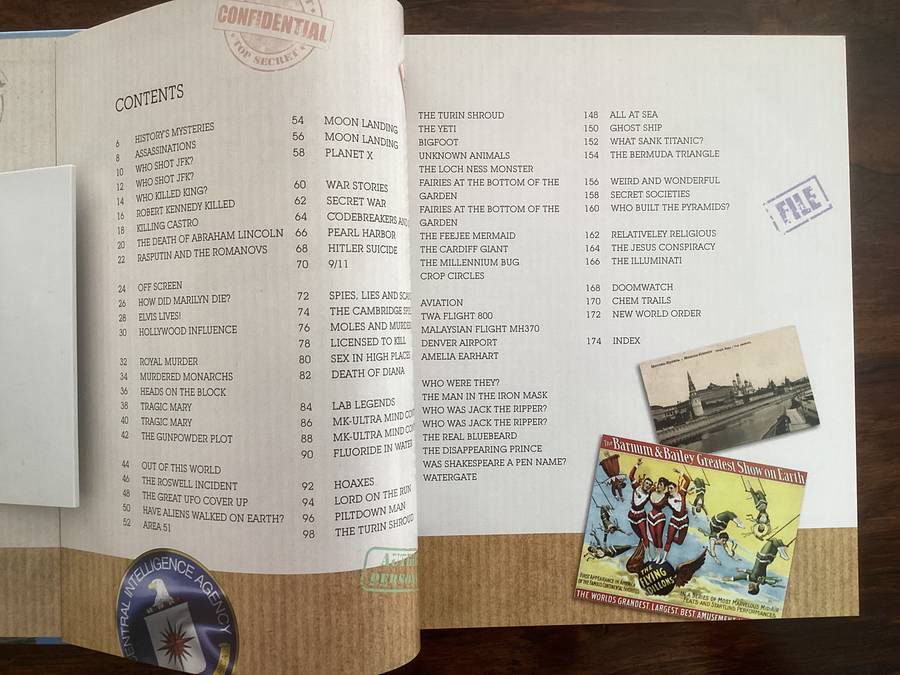 CONFIDENTIAL
TOP SECRET
CONTENTS
6 HISTORY'S MYSTERIES
8 ASSASSINATIONS
10 WHO SHOT JFK?
12 WHO SHOT JFK?
14 WHO KILLED KING?
16 ROBERT KENNEDY KILLED
18 KILLING CASTRO
20 THE DEATH OF ABRAHAM LINCOLN
22 RASPUTIN AND THE ROMANOVS
24 OFF SCREEN
26 HOW DID MARILYN DIE?
28 ELVIS LIVES!
30 HOLLYWOOD INFLUENCE
32 ROYAL MURDER
34 MURDERED MONARCHS
36 HEADS ON THE BLOCK
38 TRAGIC MARY
40 TRAGIC MARY
42 THE GUNPOWDER PLOT
44 OUT OF THIS WORLD
46 THE ROSWELL INCIDENT
48 THE GREAT UFO COVER UP
50 HAVE ALIENS WALKED ON EARTH?
52 AREA 51
54 MOON LANDING
56 MOON LANDING
58 PLANET X
60 WAR STORIES
62 SECRET WAR
64 CODEBREAKERS AND
66 PEARL HARBOR
68 HITLER SUICIDE
70 9/11
72 SPIES, LIES AND
74 THE CAMBRIDGE
76 MOLES AND MURDER
78 LICENSED TO KILL
80 SEX IN HIGH PLACES
82 DEATH OF DIANA
84 LAB LEGENDS
86 MK-ULTRA MIND
88 MK-ULTRA MIND
90 FLUORIDE IN WATER
92 HOAXES
94 LORD ON THE RUN
96 PILTDOWN MAN
98 THE TURIN SHROUD
THE TURIN SHROUD
THE YETI
BIGFOOT
UNKNOWN ANIMALS
THE LOCH NESS MONSTER
FAIRIES AT THE BOTTOM OF THE
GARDEN
FAIRIES AT THE BOTTOM OF THE
GARDEN
THE FEEJEE MERMAID
THE CARDIFF GIANT
THE MILLENNIUM BUG
CROP CIRCLES
AVIATION
TWA FLIGHT 800
MALAYSIAN FLIGHT MH370
DENVER AIRPORT
AMELIA EARHART
WHO WERE THEY?
THE MAN IN THE IRON MASK
WHO WAS JACK THE RIPPER?
WHO WAS JACK THE RIPPER?
THE REAL BLUEBEARD
THE DISAPPEARING PRINCE
WAS SHAKESPEARE A PEN NAME?
WATERGATE
148 ALL AT SEA
150 GHOST SHIP
152 WHAT SANK TITANIC?
154 THE BERMUDA TRIANGLE
156 WEIRD AND WONDERFUL
158 SECRET SOCIETIES
160 WHO BUILT THE PYRAMIDS?
162 RELATIVELEY RELIGIOUS
164 THE JESUS CONSPIRACY
166 THE ILLUMINATI
168 DOOMWATCH
170 CHEM TRAILS
172 NEW WORLD ORDER
174 INDEX
FILE
The Barnum & Bailey Greatest Show on Earth
THE
FLYING
DILLONS
FIRST APPEARANCE IN AMERICA
IN A SERIES OF MOST MARVELOUS MID-AIR
FEATS AND STARTLING PERFORMANCES
THE WORLDS GRANDEST, LARGEST, BEST, AMUSEMENT
CENTRAL INTELLIGENCE AGENCY